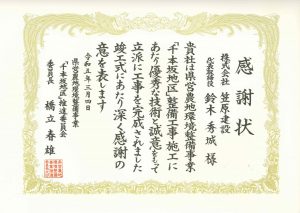 感謝状
株式会社 笠原建設
代表取締役 鈴木秀城 様
貴社は県営農地環境整備事業
「千本坂地区」整備工事の施工に
あたり優秀な技術と誠意をもって
立派に工事を完成されました
竣工式にあたり深く感謝の
意を表します
令和五年三月四日
県営農地環境整備事業
「千本坂地区」推進委員会
委員長 橋立春雄